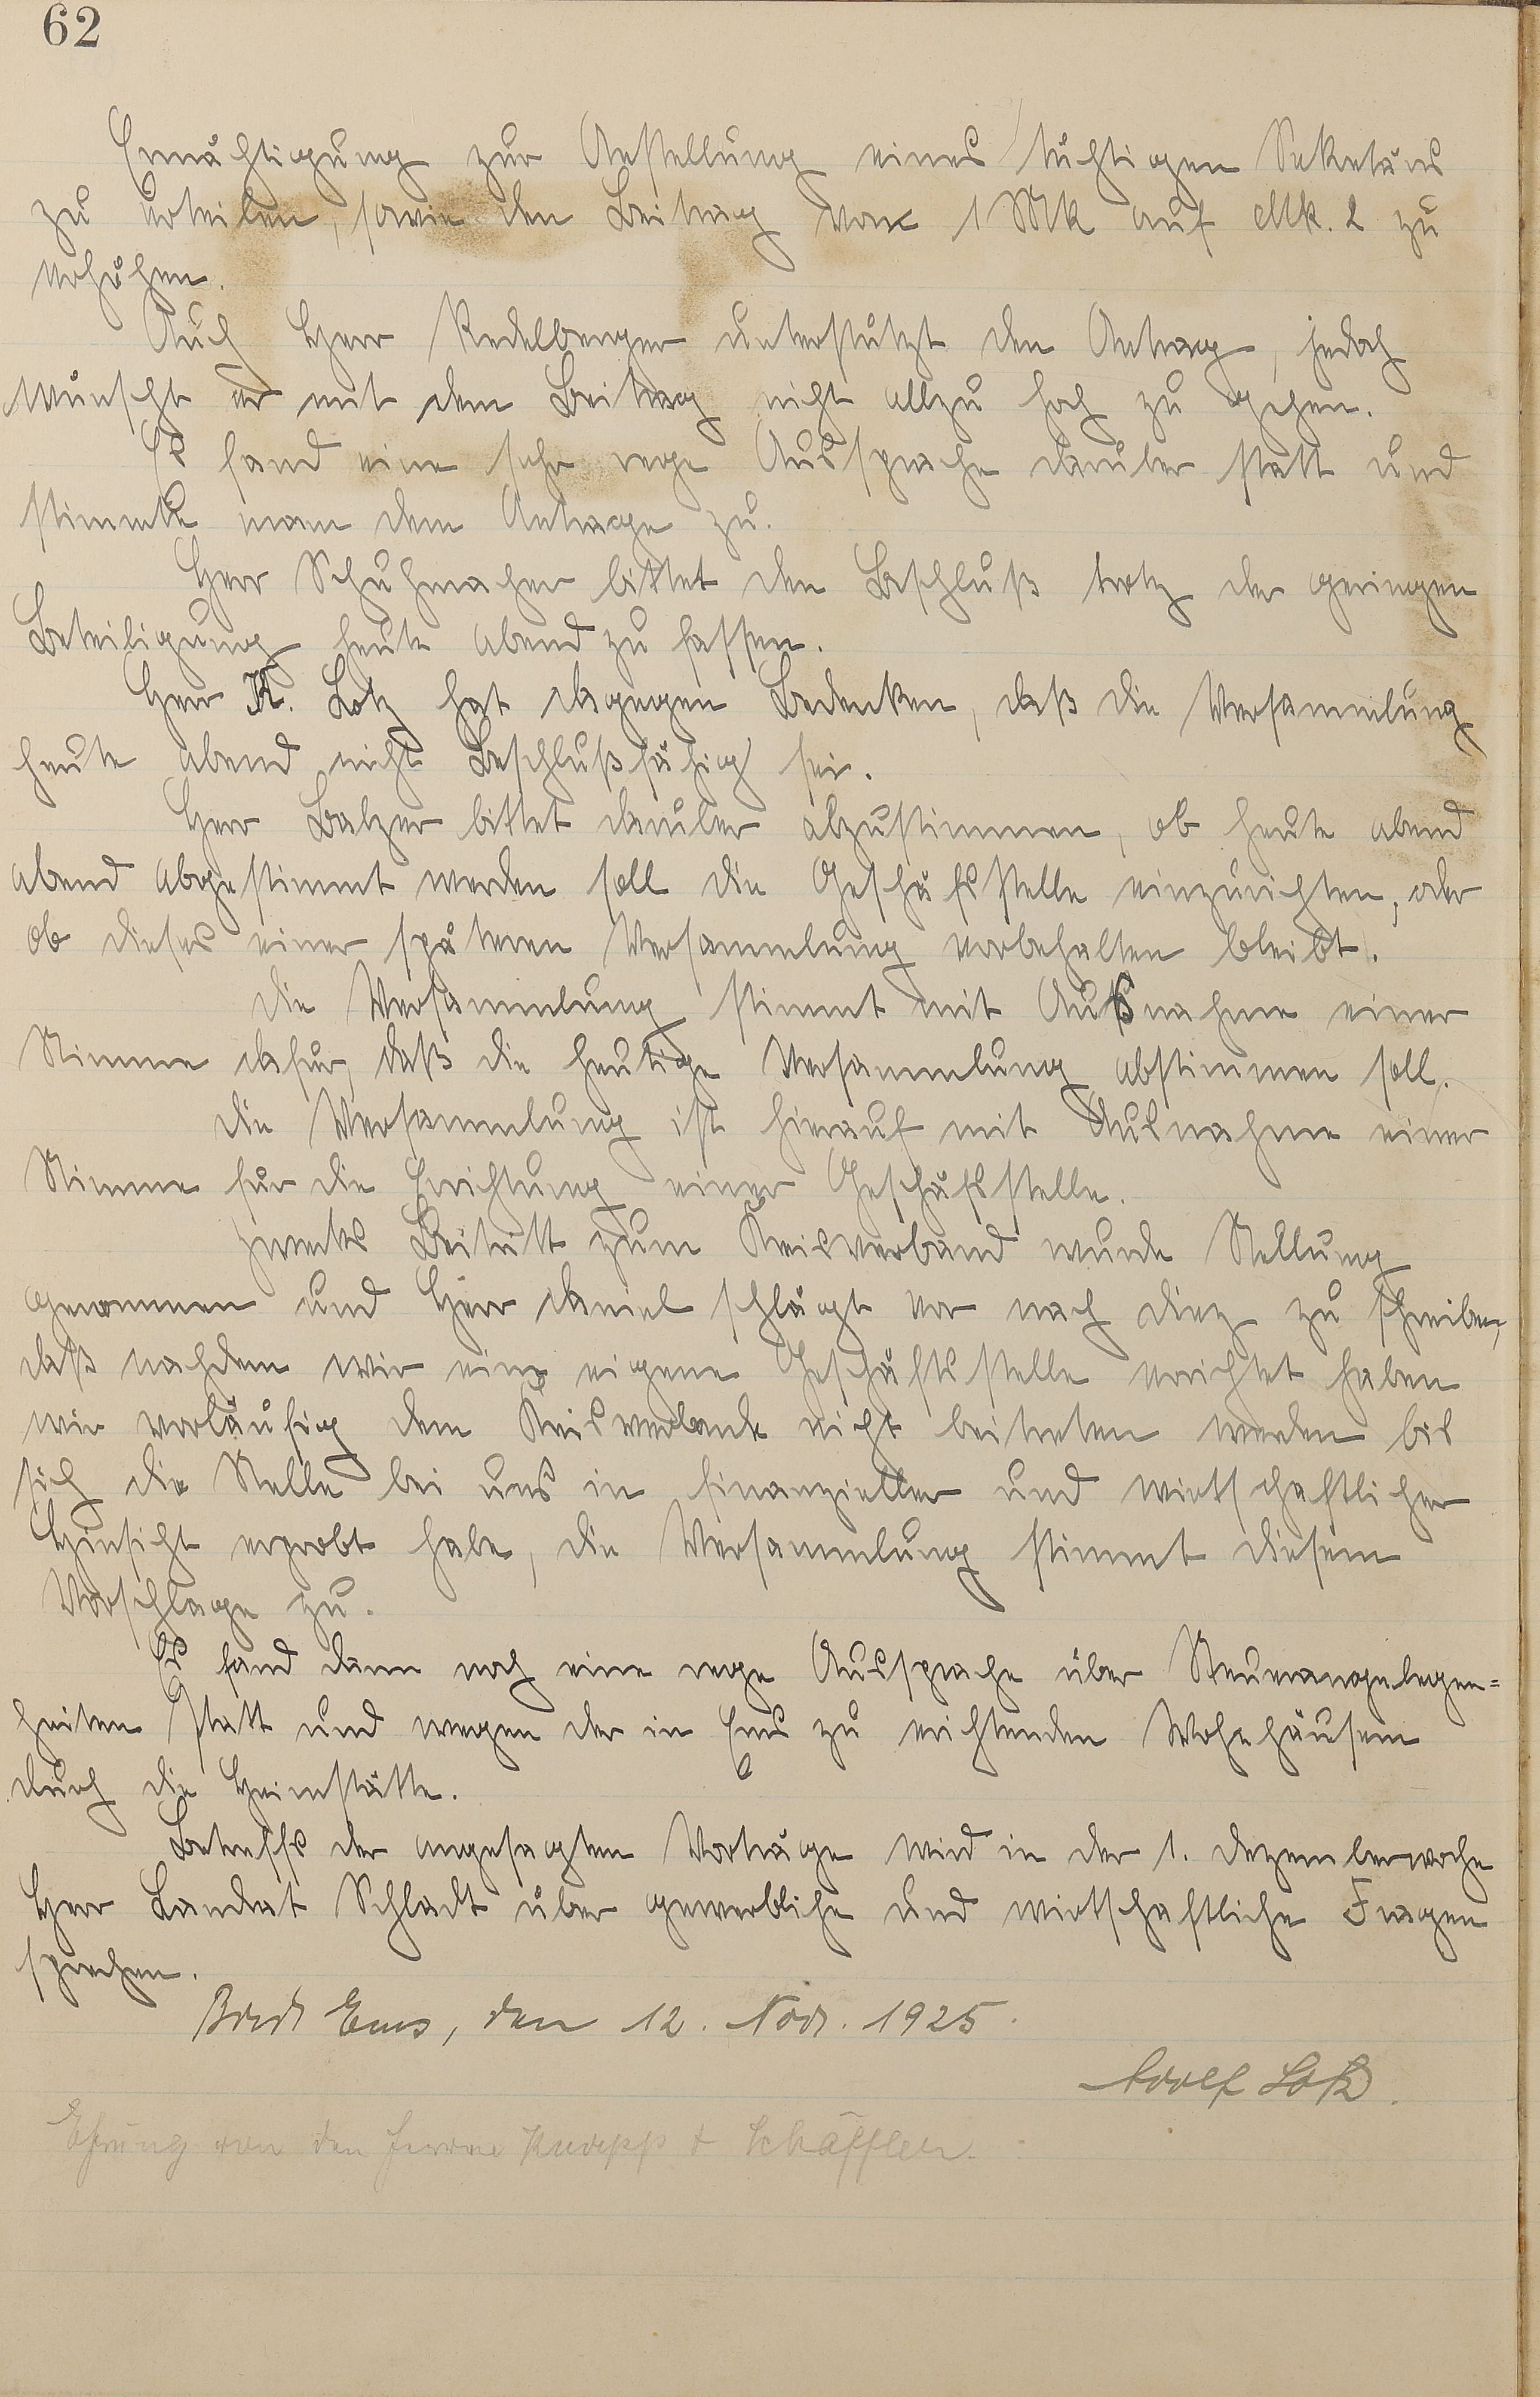 62
Ermächtigung zur Anstellung eines tüchtigen Sekretärs
zu erteilen, sowie den Beitrag von 1 Mk auf Mk. 2 zu
erhöhen.
Auch Herr Redelberger unterstützt den Antrag, jedoch
wünscht er mit dem Beitrag nicht allzu hoch zu gehen.
Es fand eine sehr rege Aussprache darüber statt und
stimmte man dem Antrage zu.
Herr Schuhmacher bittet den Beschluß trotz der geringen
Beteiligung heute abend zu fassen.
Herr K. Lotz hat dagegen Bedenken, daß die Versammlung
heute abend nicht Beschlußfähig sei.
Herr Balzer bittet darüber abzustimmen, ob heute abend
abend abgestimmt werden soll die Geschäfsstelle einzurichten, oder
ob dieses einer späteren Versammlung vorbehalten bleibt.
Die Versammlung stimmt mit Ausnahme einer
Stimme dafür, daß die heutige Versammlung abstimmen soll.
Die Versammlung ist hierauf mit Ausnahme einer
Stimme für die Errichtung einer Geschäfsstelle.
Zwecks Beitritt zum Kreisverband wurde Stellung
genommen und Herr Daniel schlägt vor nach Diez zu schreiben,
daß nachdem wir eine eigene Geschäftsstelle errichtet haben
wir vorläufig dem Kreisverbande nicht beitreten werden bis
sich die Stelle bei uns in finanzieller und wirtschaftlicher
Hinsicht erprobt habe, die Versammlung stimmt diesem
Vorschlage zu.
Es fand dann noch eine rege Aussprache über Steuerangelegen=
heiten statt und wegen der in Ems zu errichtenden Wohnhäusern
durch die Heimstätte.
Betreffs der angesagten Vorträge wird in der 1. Dezemberwoche
Herr Landrat Schladt über gewerbliche und wirtschaftliche Fragen
sprechen.
Bad Ems, den 12. Nov. 1925.
Adolf Lotz.
Ehrung von den Herren & Schäffler.